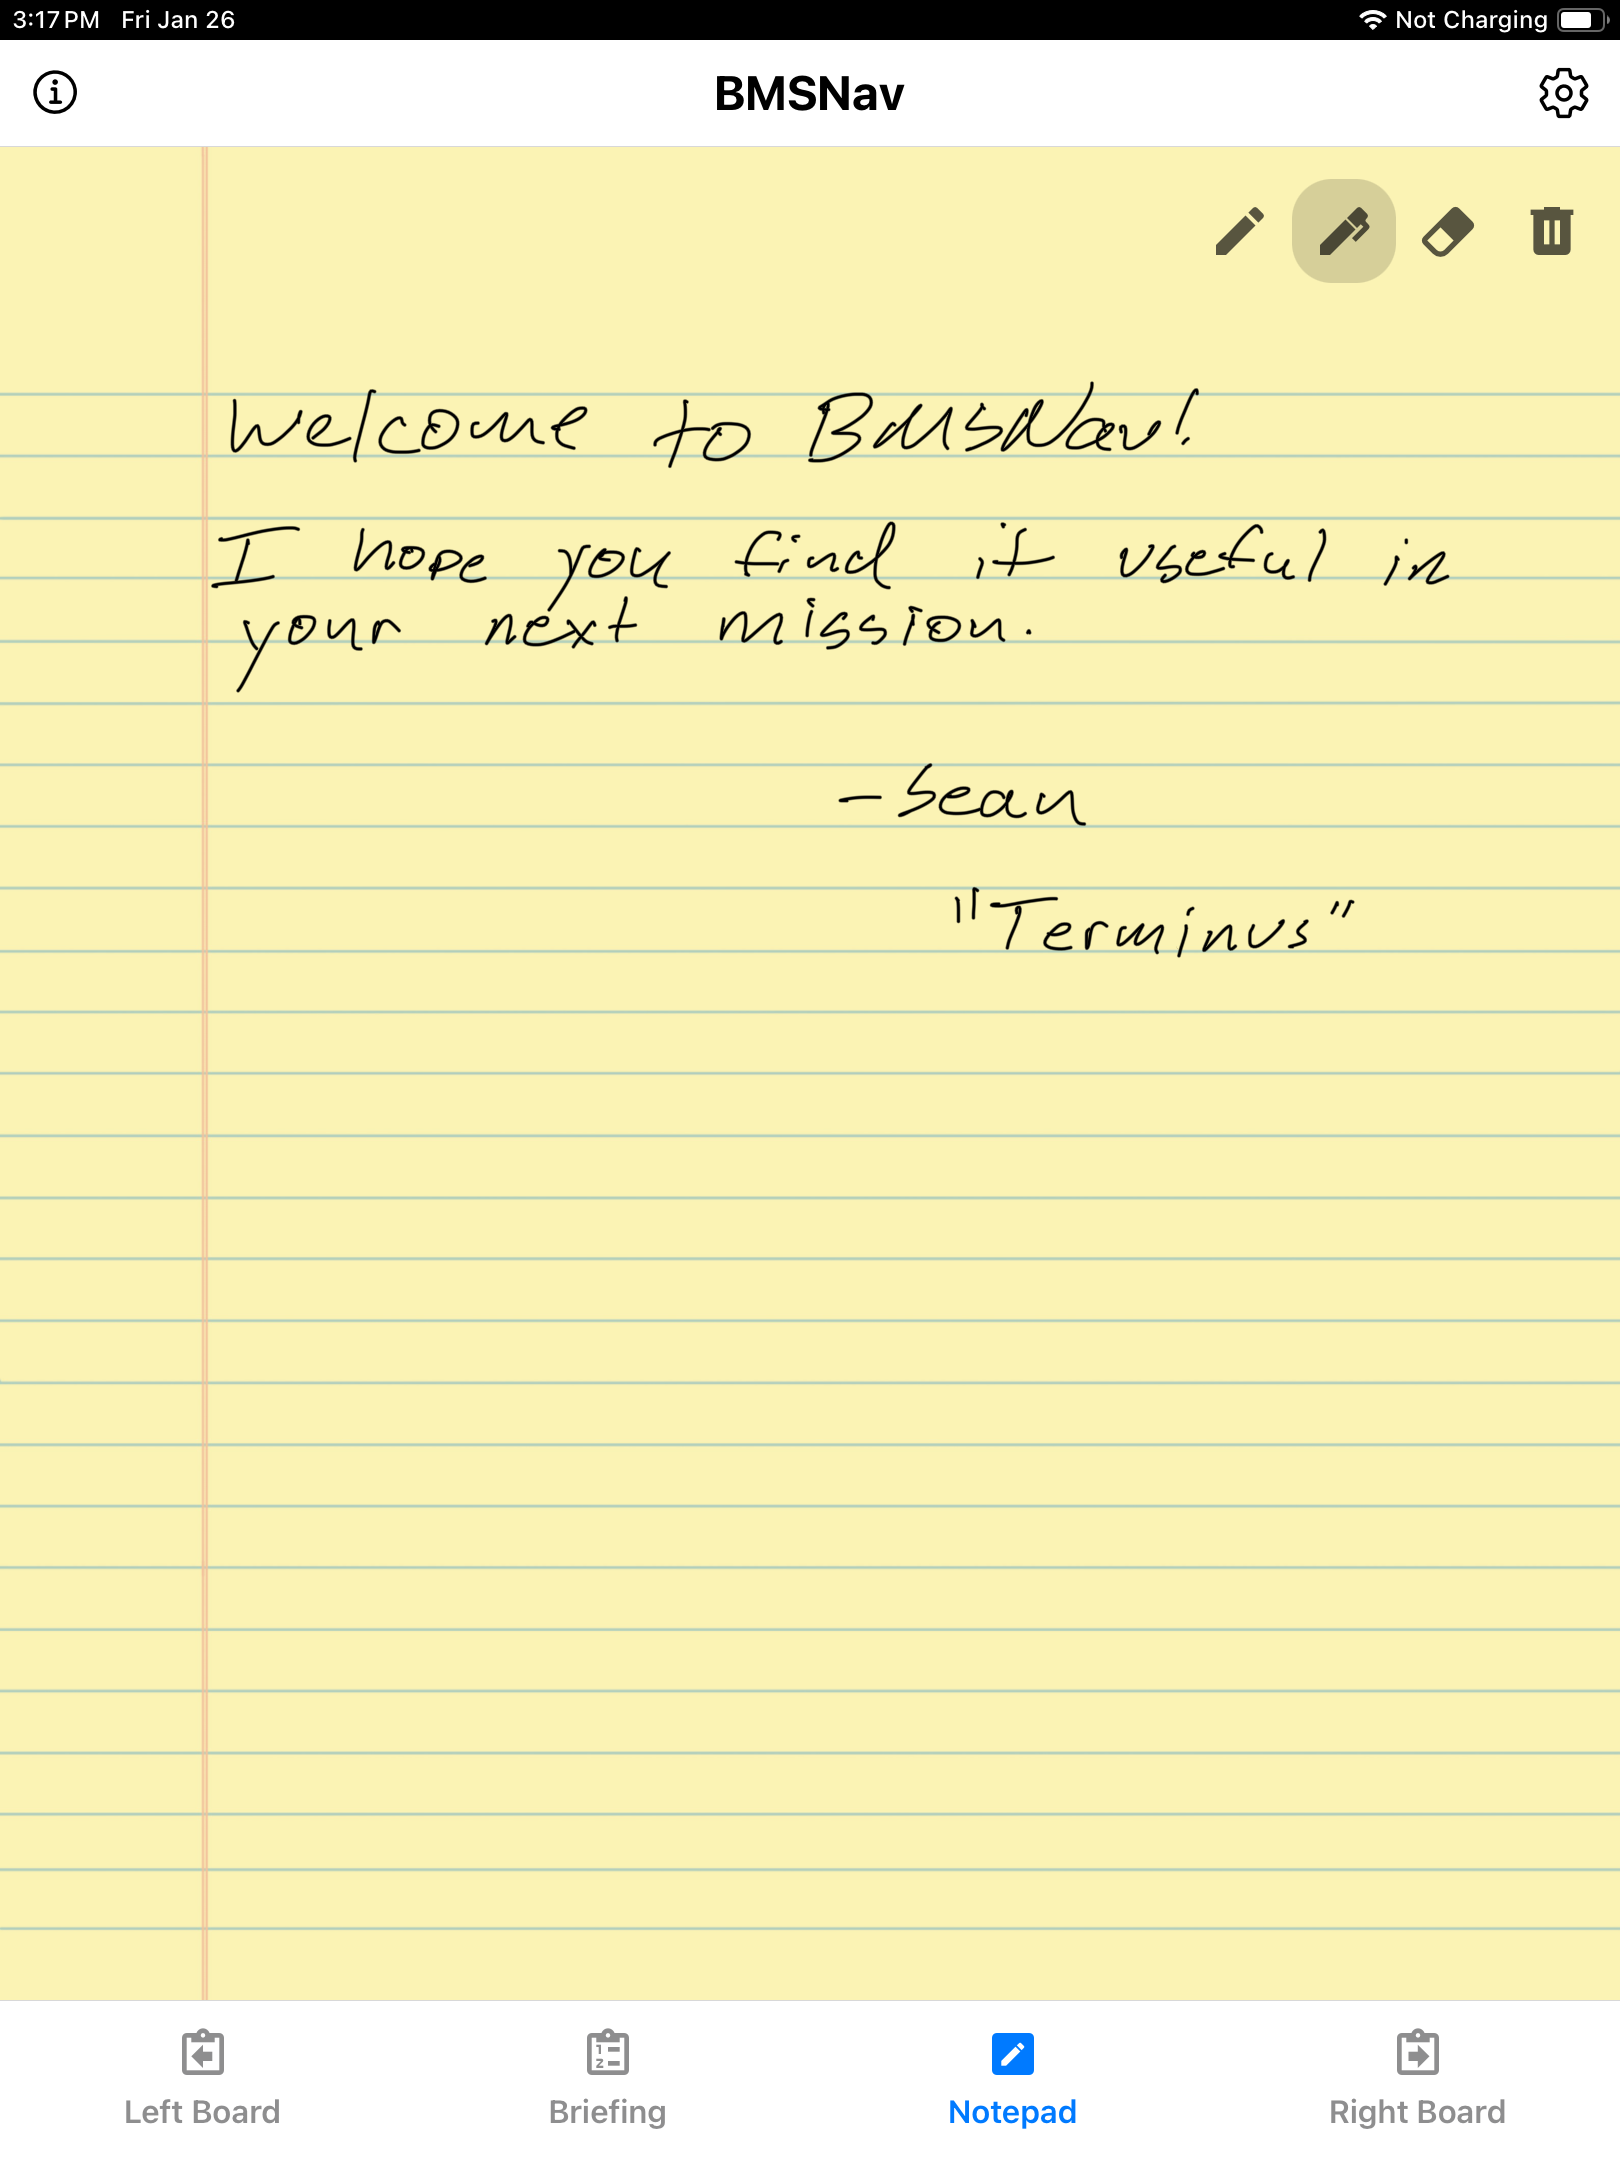 3:17 PM Fri Jan 26 Not Charging
BMSNav
Welcome to BMSNav!
I hope you find it useful in
your next mission.
- Sean
"Terminus"
Left Board Briefing Notepad Right Board